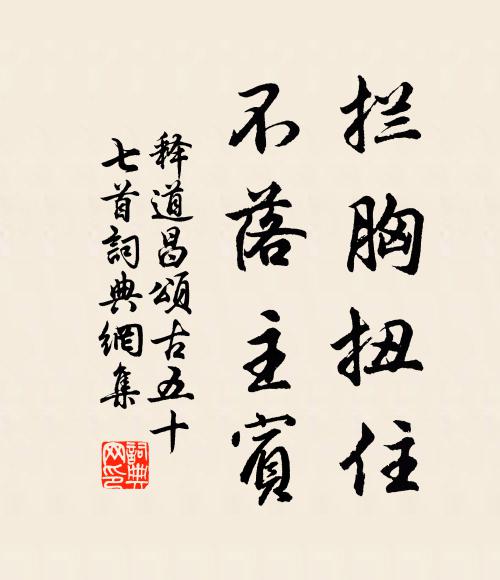 拦胸扭住
不落主賓
释道昌頌古五十
七首詞典網集
詞典
网印